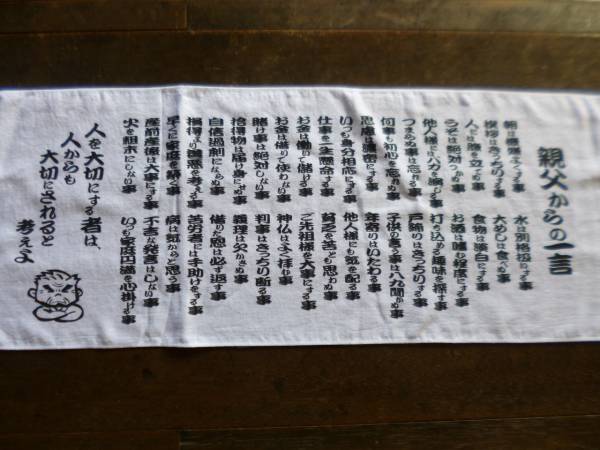 親父からの一言
朝は機嫌よくする事
挨拶はきっちりする事
人には腹を立てぬ事
うそは絶対つかぬ事
他人様にハラを割る事
つまらぬ事は忘れる事
何事も初心を忘れぬ事
思慮は綿密にする事
いつも身分相応にする事
仕事を一生懸命する事
お金は働いて儲ける事
お金は借りて使わない事
賭け事は絶対しない事
拾得物は届け身にせず
自信過剰にならぬ事
損得より善悪を考える事
早くに家庭を築く事
産前産後は大事にする事
火を粗末にしない事
水は別格扱いにする事
大めしは食べぬ事
食物は淡白にする事
お酒は嗜む程度にする事
打ち込める趣味を探す事
戸締りはきっちりする事
子供の言う事は八九聞かぬ事
年寄りはいたわる事
他人様にも気を配る事
貧乏を苦とも思わぬ事
ご先祖様を大事にする事
神仏はよく拝む事
判事はきっちり断る事
義理は欠かさぬ事
借りた恩は必ず返す事
苦労者には手助けをする事
病は気からと思う事
不吉な発言はしない事
いつも家庭円満を心掛ける事
人を大切にする者は
人からも
大切にされると
考えよ